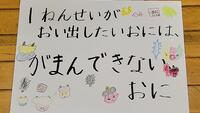 1ねんせいが
おい出したいおには、
がまんできない
おに